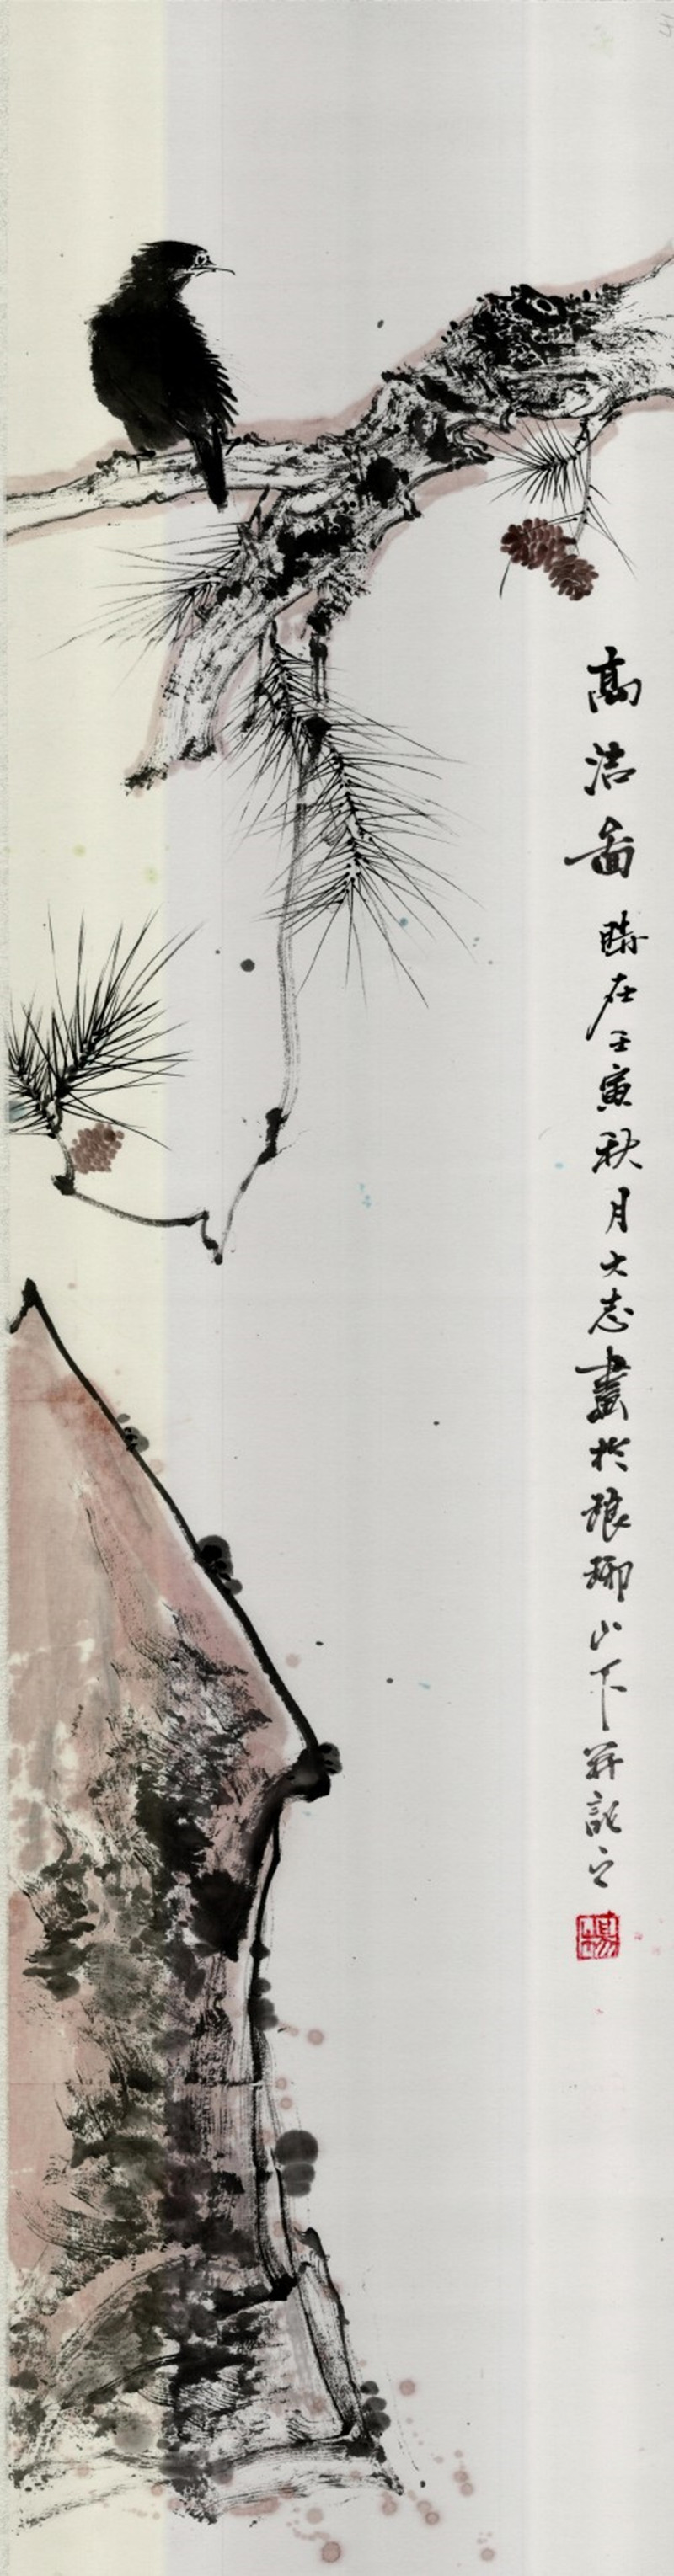 高洁畫時在壬寅秋月大志畫於琅琊山下並記之